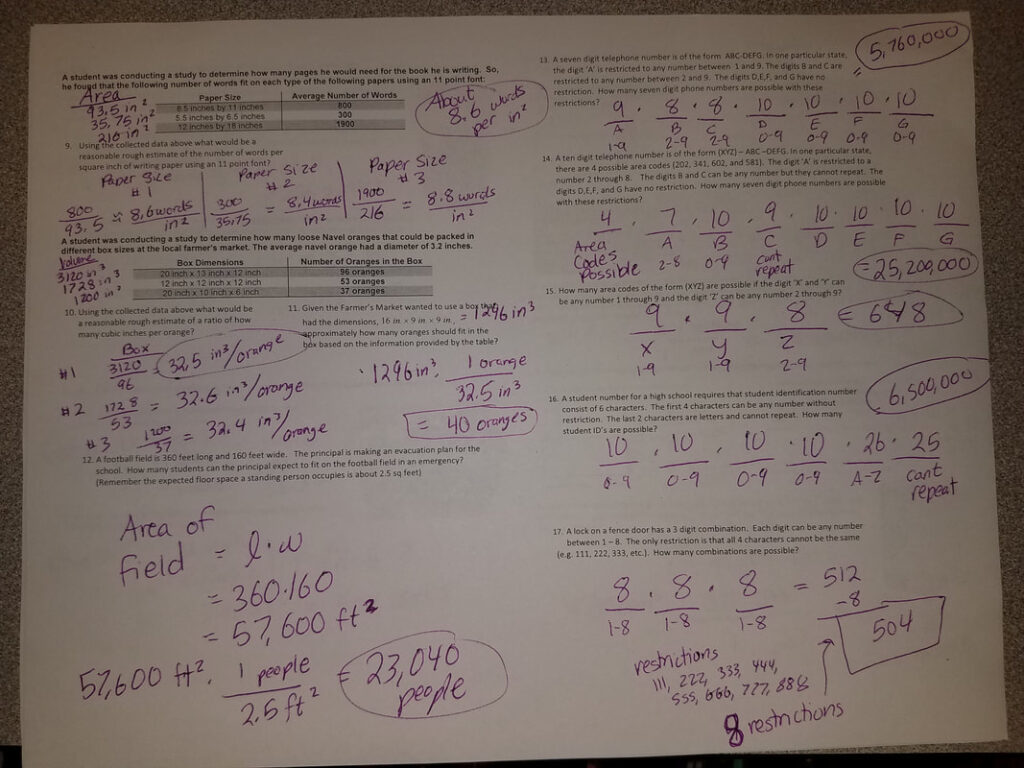 A student was conducting a study to determine how many pages he would need for the book he is writing. So,
he found that the following number of words fit on each type of the following papers using an 11 point font:
Area
93.5 in²
35.75 in²
216 in²
Paper Size Average Number of Words
8.5 inches by 11 inches 800
5.5 inches by 6.5 inches 300
12 inches by 18 inches 1900
About
8.6 words
per in²
9. Using the collected data above what would be a
reasonable rough estimate of the number of words per
square inch of writing paper using an 11 point font?
Paper Size
#1
800 / 93.5 ≈ 8.6 words / in²
Paper Size
#2
300 / 35.75 = 8.4 words / in²
Paper Size
#3
1900 / 216 = 8.8 words / in²
A student was conducting a study to determine how many loose Navel oranges that could be packed in
different box sizes at the local farmer's market. The average navel orange had a diameter of 3.2 inches.
Volume
3120 in³
1728 in³
1200 in³
Box Dimensions Number of Oranges in the Box
20 inch x 13 inch x 12 inch 96 oranges
12 inch x 12 inch x 12 inch 53 oranges
20 inch x 10 inch x 6 inch 37 oranges
10. Using the collected data above what would be
a reasonable rough estimate of a ratio of how
many cubic inches per orange?
Box
#1 3120 / 96 = 32.5 in³/orange
#2 1728 / 53 = 32.6 in³/orange
#3 1200 / 37 = 32.4 in³/orange
11. Given the Farmer's Market wanted to use a box that
had the dimensions, 16 in × 9 in × 9 in, = 1296 in³
approximately how many oranges should fit in the
box based on the information provided by the table?
· 1296 in³ · 1 orange / 32.5 in³
= 40 oranges
12. A football field is 360 feet long and 160 feet wide. The principal is making an evacuation plan for the
school. How many students can the principal expect to fit on the football field in an emergency?
(Remember the expected floor space a standing person occupies is about 2.5 sq feet)
Area of
field = l·w
= 360·160
= 57,600 ft²
57,600 ft² · 1 people / 2.5 ft² = 23,040
people
13. A seven digit telephone number is of the form ABC-DEFG. In one particular state,
the digit 'A' is restricted to any number between 1 and 9. The digits B and C are
restricted to any number between 2 and 9. The digits D,E,F, and G have no
restriction. How many seven digit phone numbers are possible with these
restrictions?
= 5,760,000
9 · 8 · 8 · 10 · 10 · 10 · 10
A B C D E F G
1-9 2-9 2-9 0-9 0-9 0-9 0-9
14. A ten digit telephone number is of the form (XYZ) – ABC –DEFG. In one particular state,
there are 4 possible area codes (202, 341, 602, and 581). The digit 'A' is restricted to a
number 2 through 8. The digits B and C can be any number but they cannot repeat. The
digits D,E,F, and G have no restriction. How many seven digit phone numbers are possible
with these restrictions?
4 · 7 · 10 · 9 · 10 · 10 · 10 · 10
Area A B C D E F G
Codes
Possible 2-8 0-9 cant
repeat
= 25,200,000
15. How many area codes of the form (XYZ) are possible if the digit 'X' and 'Y' can
be any number 1 through 9 and the digit 'Z' can be any number 2 through 9?
9 · 9 · 8 = 648
X Y Z
1-9 1-9 2-9
16. A student number for a high school requires that student identification number
consist of 6 characters. The first 4 characters can be any number without
restriction. The last 2 characters are letters and cannot repeat. How many
student ID's are possible?
6,500,000
10 · 10 · 10 · 10 · 26 · 25
0-9 0-9 0-9 0-9 A-Z cant
repeat
17. A lock on a fence door has a 3 digit combination. Each digit can be any number
between 1 – 8. The only restriction is that all 4 characters cannot be the same
(e.g. 111, 222, 333, etc.). How many combinations are possible?
8 · 8 · 8 = 512
1-8 1-8 1-8
-8
504
restrictions
111, 222, 333, 444,
555, 666, 777, 888
8 restrictions